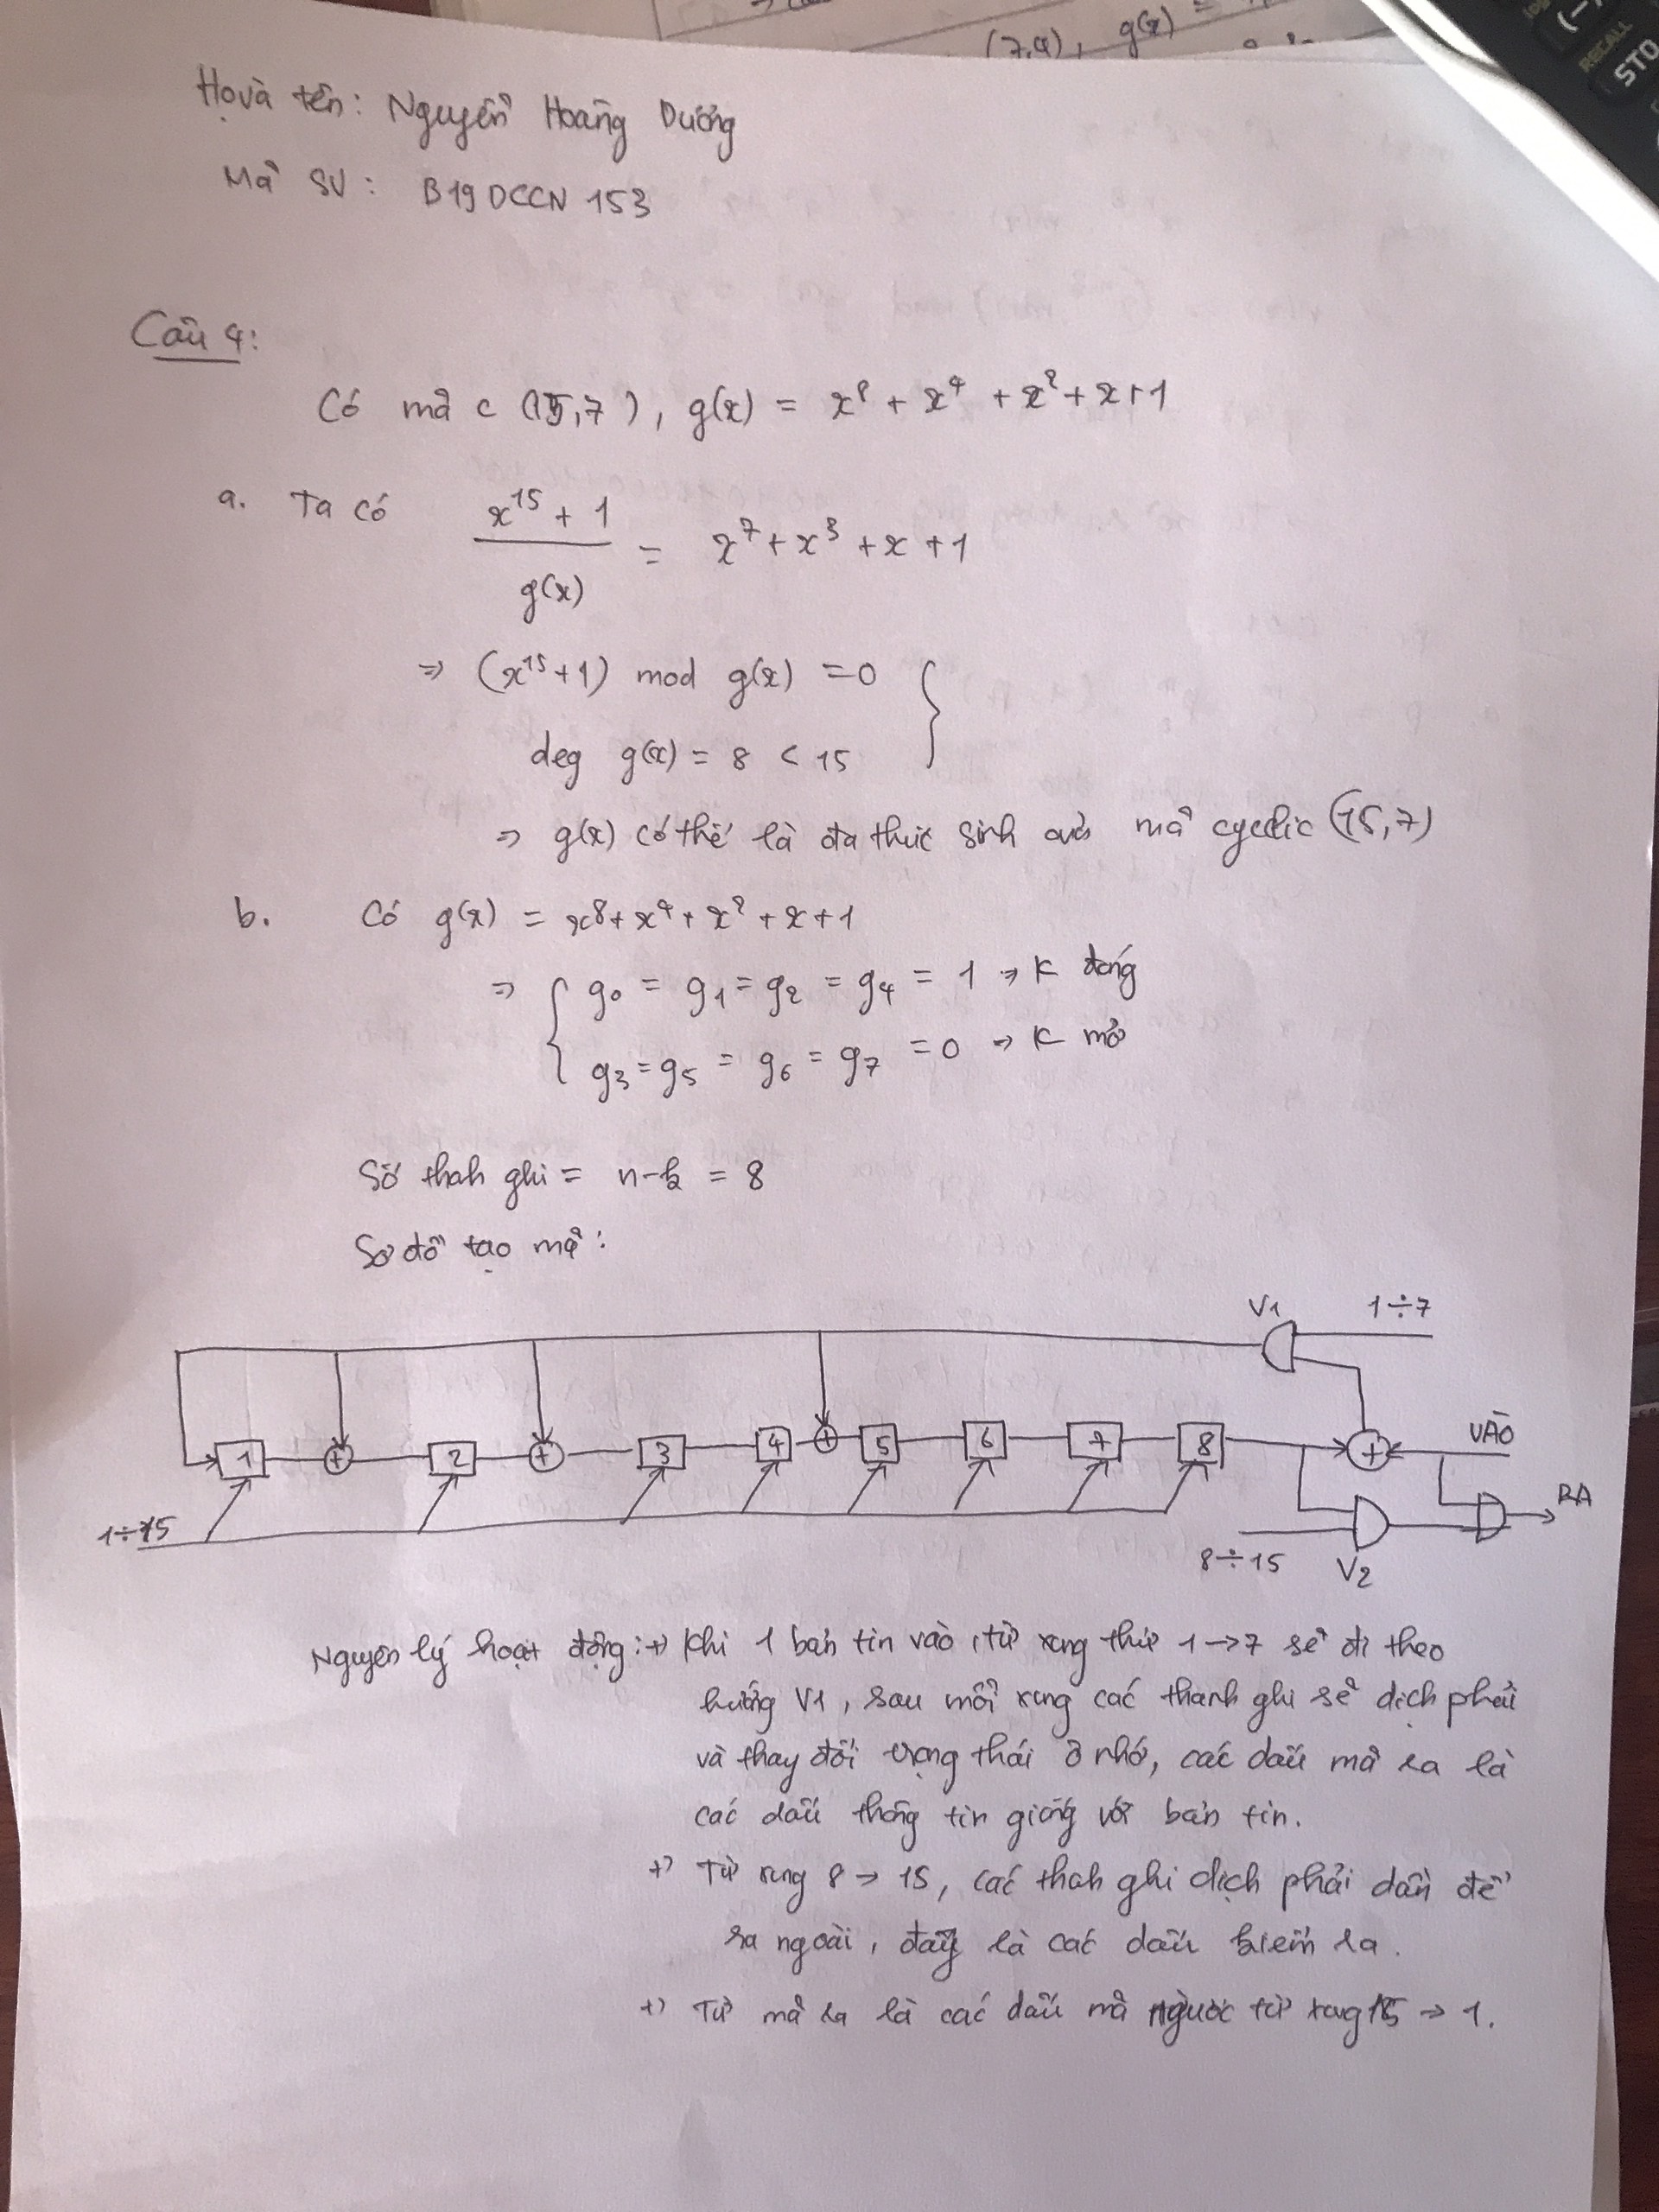 (7,4), g(x) =
RECALL
(-)
STO
Họ và tên: Nguyễn Hoàng Dương
Mã SV: B19DCCN153
Câu 4:
Có mã C (15,7), g(x) = x⁸ + x⁴ + x² + x + 1
a. Ta có (x¹⁵ + 1) / g(x) = x⁷ + x³ + x + 1
⇒ (x¹⁵+1) mod g(x) = 0 }
deg g(x) = 8 < 15
⇒ g(x) có thể là đa thức sinh của mã cyclic (15,7)
b. Có g(x) = x⁸ + x⁴ + x² + x + 1
⇒ { g₀ = g₁ = g₂ = g₄ = 1 → K đóng
g₃ = g₅ = g₆ = g₇ = 0 → K mở
Số thanh ghi = n-k = 8
Sơ đồ tạo mã:
V1 1÷7
1 + 2 + 3 4 + 5 6 7 8 + VÀO
1÷15 RA
8÷15 V2
Nguyên lý hoạt động: +) Khi 1 bản tin vào, từ xung thứ 1→7 sẽ đi theo
hướng V1, sau mỗi xung các thanh ghi sẽ dịch phải
và thay đổi trạng thái ô nhớ, các dấu mã ra là
các dấu thông tin giống với bản tin.
+) Từ xung 8 → 15, các thanh ghi dịch phải dần để
ra ngoài, đây là các dấu kiểm ra.
+) Từ mã ra là các dấu mã ngược từ xung 15 → 1.